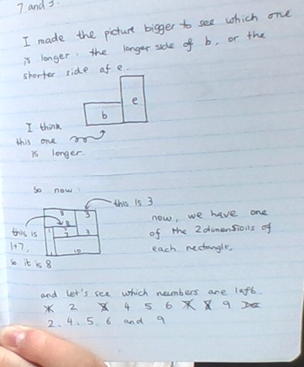 7 and 3.
I made the picture bigger to see which one
is longer. the longer side of b, or the
shorter side of e.
e
b
I think
this one
is longer.
So now
this is 3
this is
1+7,
so it is 8
now, we have one
of the 2 dimensions of
each rectangle,
and let's see which numbers are left.
2 4 5 6 9
2. 4. 5. 6 and 9